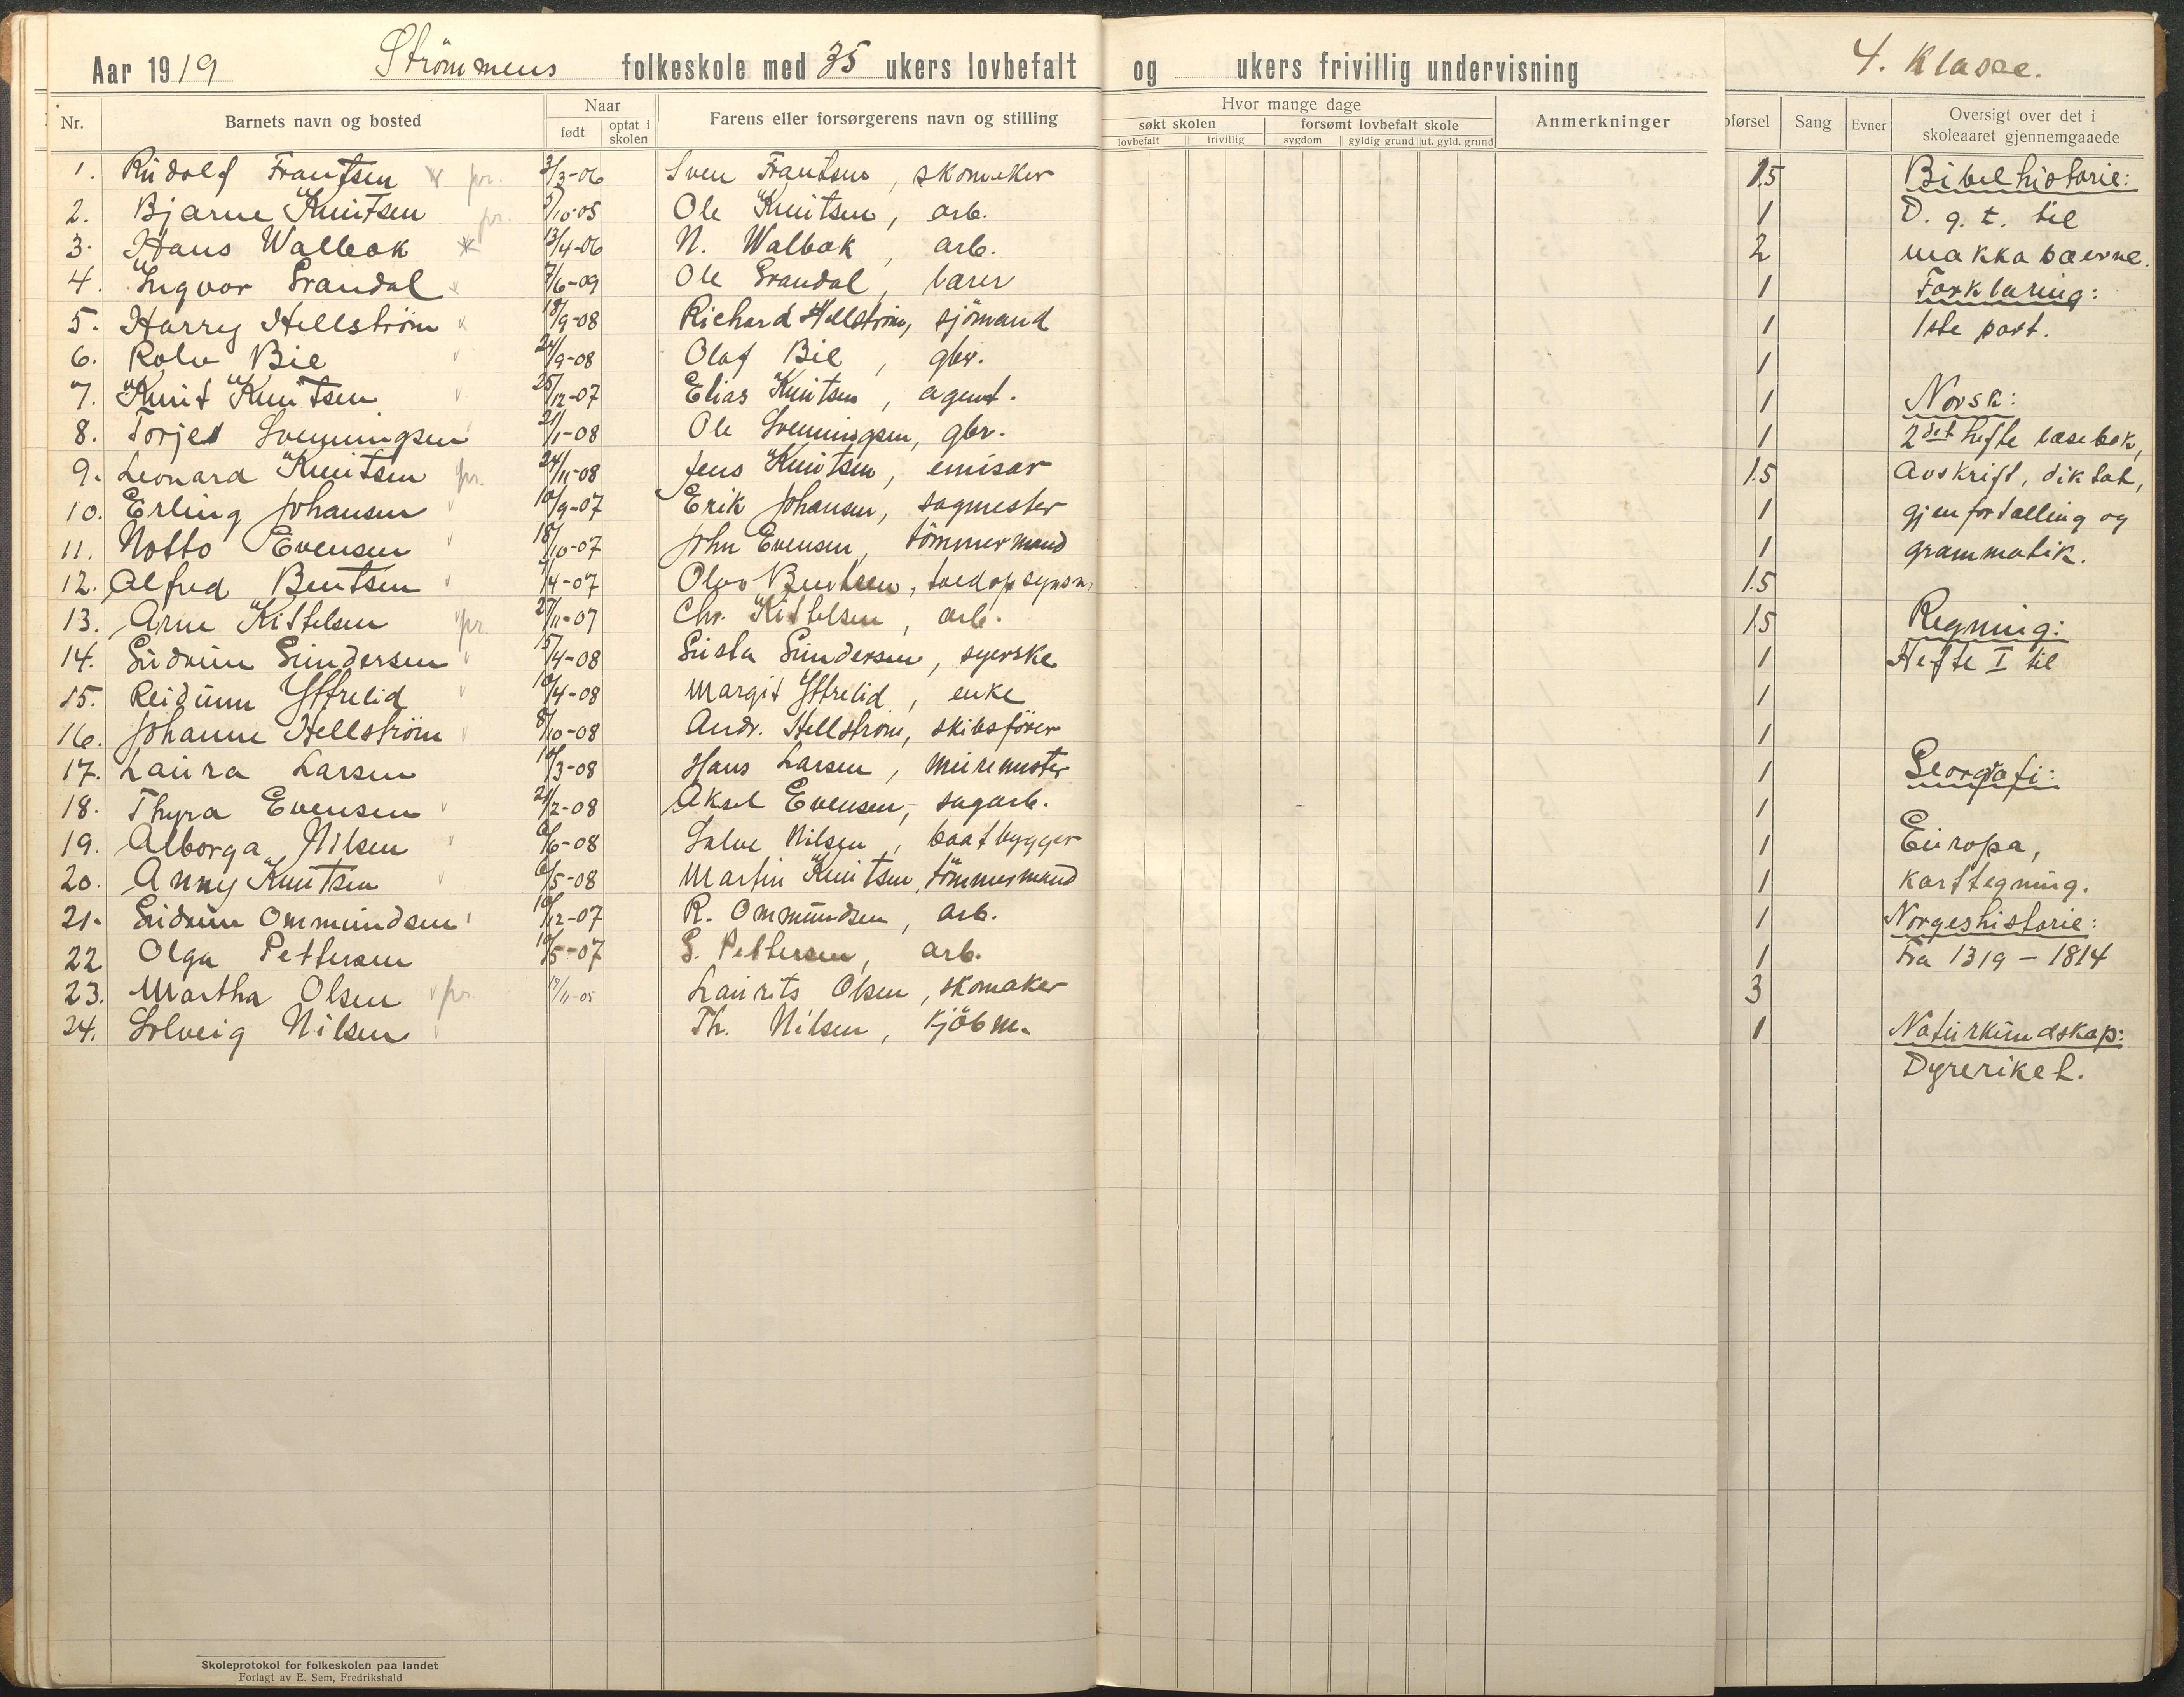 Aar 1919 Strömmens folkeskole med 35 ukers lovbefalt og ukers frivillig undervisning
4. Klasse.
Nr. Barnets navn og bosted Naar født optat i skolen Farens eller forsørgerens navn og stilling
Hvor mange dage søkt skolen lovbefalt frivillig forsømt lovbefalt skole sygdom gyldig grund ut. gyld. grund Anmerkninger
førsel Sang Evner Oversigt over det i skoleaaret gjennemgaaede
1. Rudolf Frantsen pr. 3/3-06 Sven Frantsen, skomaker 1.5 Bibelhistorie:
2. Bjarne Knutsen pr. 5/10-05 Ole Knutsen, arb. 1 D. g. t. til
3. Hans Walbok 13/4-06 N. Walbok, arb. 2 makkabæerne.
4. Ingvor Grandal 7/6-09 Ole Grandal, lærer 1 Forklaring:
5. Harry Hellström 18/9-08 Richard Hellström, sjömand 1 1ste part.
6. Rolv Bie 24/9-08 Olaf Bie, gbr. 1
7. Knut Knutsen 25/12-07 Elias Knutsen, agent. 1 Norsk:
8. Torjes Svenningsen 21/1-08 Ole Svenningsen, gbr. 1 2det hefte læsebok,
9. Leonard Knutsen pr. 24/11-08 Jens Knutsen, emisær 1.5 Avskrift, diktat,
10. Erling Johansen 10/9-07 Erik Johansen, sagmester 1 gjenfortælling og
11. Notto Evensen 18/10-07 John Evensen, tömmermand 1 grammatik.
12. Alfred Bentsen 4-07 Olav Bentsen, toldopsynsm 1.5
13. Arne Kittelsen pr. 27/11-07 Chr. Kittelsen, arb. 1.5 Regning:
14. Gudrun Gundersen 15/4-08 Gusta Gundersen, syerske 1 Hefte I til
15. Reidunn Yttrelid 10/4-08 Margit Yttrelid, enke 1
16. Johanne Hellström 8/10-08 Andr. Hellström, skibsförer 1
17. Laura Larsen 10/3-08 Hans Larsen, muremester 1 Georgrafi:
18. Thyra Evensen 21/2-08 Aksel Evensen, sagarb. 1
19. Alborga Nilsen 6-08 Salve Nilsen, baatbygger 1 Europa,
20. Anny Knutsen 5-08 Martin Knutsen, tömmermand 1 karttegning.
21. Gudrun Ommundsen 10/12-07 R. Ommundsen, arb. 1 Norgeshistorie:
22 Olga Pettersen 10/5-07 G. Pettersen, arb. 1 Fra 1319 - 1814
23. Martha Olsen pr. 17/11-05 Laurits Olsen, skomaker 3
24. Solveig Nilsen Th. Nilsen, kjöbm. 1 Naturkundskap:
Dyreriket.
Skoleprotokol for folkeskolen paa landet
Forlagt av E. Sem, Fredrikshald